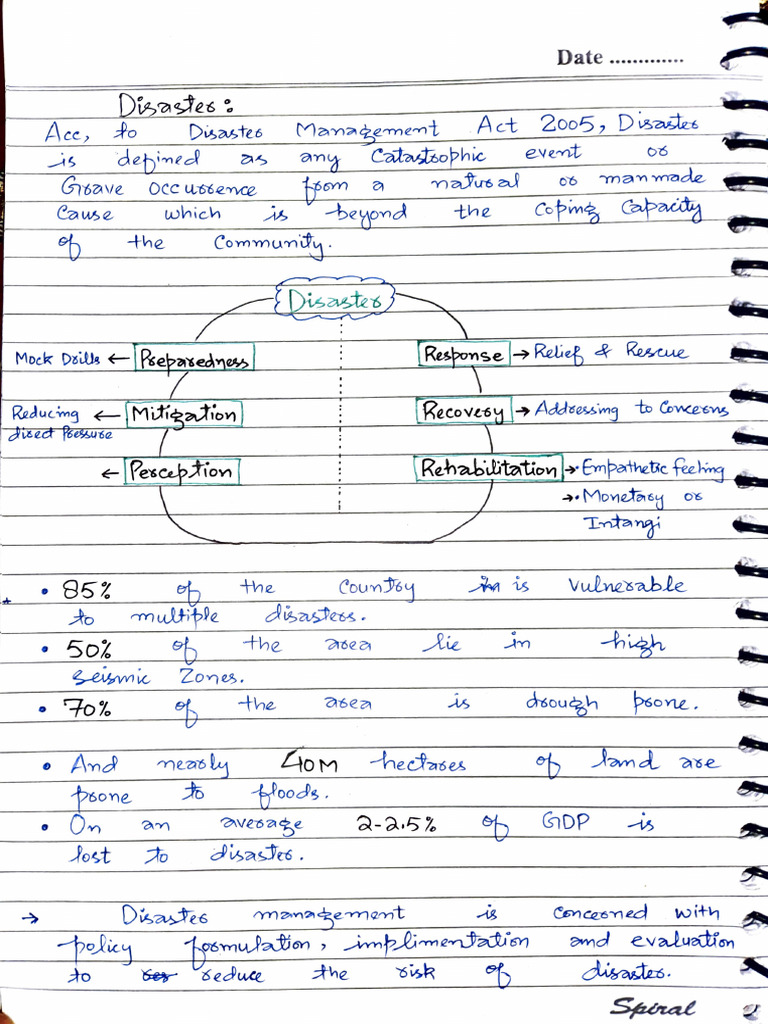 Date .............
Disaster:
Acc, to Disaster Management Act 2005, Disaster
is defined as any Catastrophic event or
Grave occurrence from a natural or manmade
cause which is beyond the coping capacity
of the community.
Disaster
Mock Drills ← Preparedness
Response → Relief & Rescue
Reducing direct Pressure ← Mitigation
Recovery → Addressing to Concerns
← Perception
Rehabilitation → • Empathetic feeling
→ • Monetary or
Intangi
• 85% of the country is vulnerable
to multiple disasters.
• 50% of the area lie in high
seismic zones.
• 70% of the area is drough prone.
• And nearly 40M hectares of land are
prone to floods.
• On an average 2-2.5% of GDP is
lost to disaster.
→ Disaster management is concerned with
policy formulation, implimentation and evaluation
to reduce the risk of disaster.
Spiral